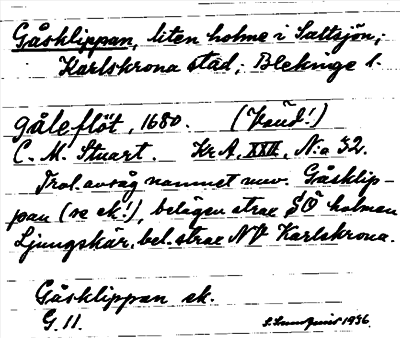 Gåsklippan, liten holme i Saltsjön;
Karlskrona stad; Blekinge l.
gåleflöt, 1680. (Vaud!)
C. M. Stuart. Kr A, XXII, N:o 32.
Trol. avsåg namnet nuv. Gåsklip-
pan (se ek!), belägen strax SÖ holmen
Ljungskär, bel. strax NV Karlskrona.
Gåsklippan ek.
G. 11. 1936.